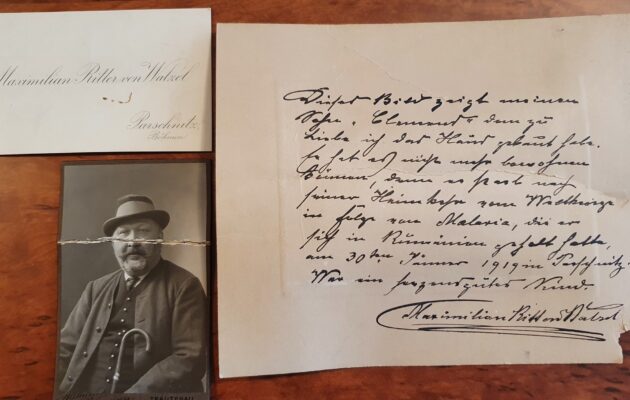 Maximilian Ritter von Walzel
Parschnitz,
Böhmen
Dieses Bild zeigt meinen
Sohn, Clemens dem zu
Liebe ich das Haus gebaut habe.
Er hat es nicht mehr bewohnen
können, denn er starb nach
seiner Heimkehr vom Weltkriege
in Folge von Malaria, die er
sich in Rumänien geholt hatte,
am 30ten Jänner 1919 in Parschnitz.
War ein herzensgutes Kind.
Maximilian Ritt von Walzel
TRAUTENAU